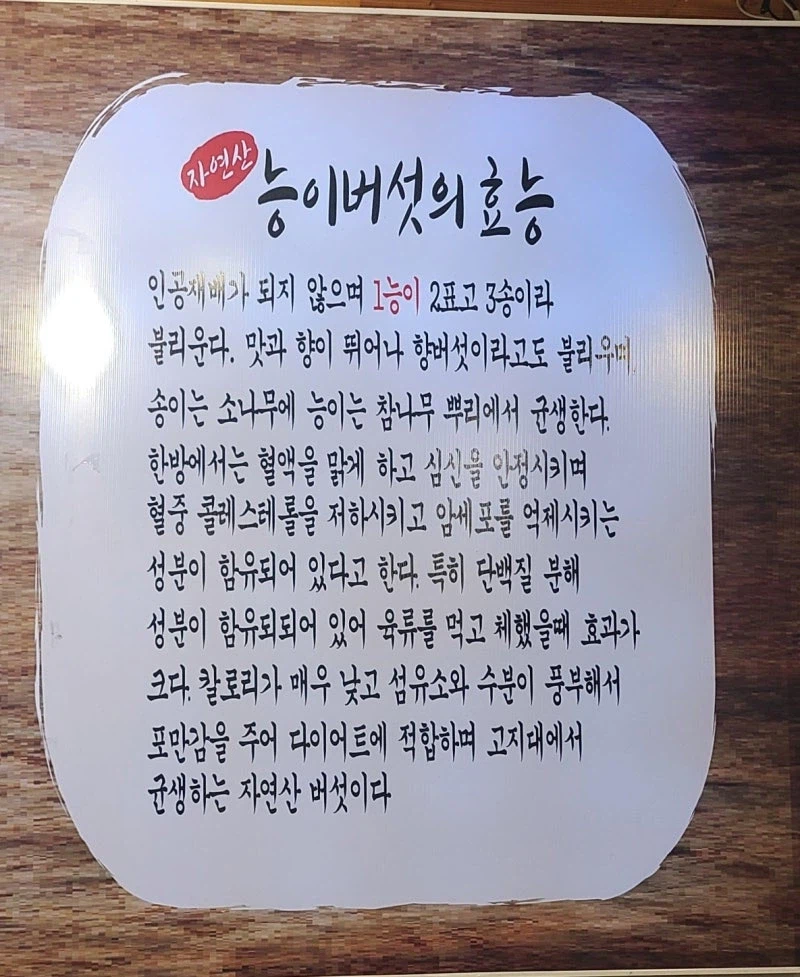 자연산
능이버섯의 효능
인공재배가 되지 않으며 1능이 2표고 3송이라
불리운다. 맛과 향이 뛰어나 향버섯이라고도 불리우며,
송이는 소나무에 능이는 참나무 뿌리에서 균생한다.
한방에서는 혈액을 맑게 하고 심신을 안정시키며
혈중 콜레스테롤을 저하시키고 암세포를 억제시키는
성분이 함유되어 있다고 한다. 특히 단백질 분해
성분이 함유되되어 있어 육류를 먹고 체했을때 효과가
크다. 칼로리가 매우 낮고 섬유소와 수분이 풍부해서
포만감을 주어 다이어트에 적합하며 고지대에서
균생하는 자연산 버섯이다